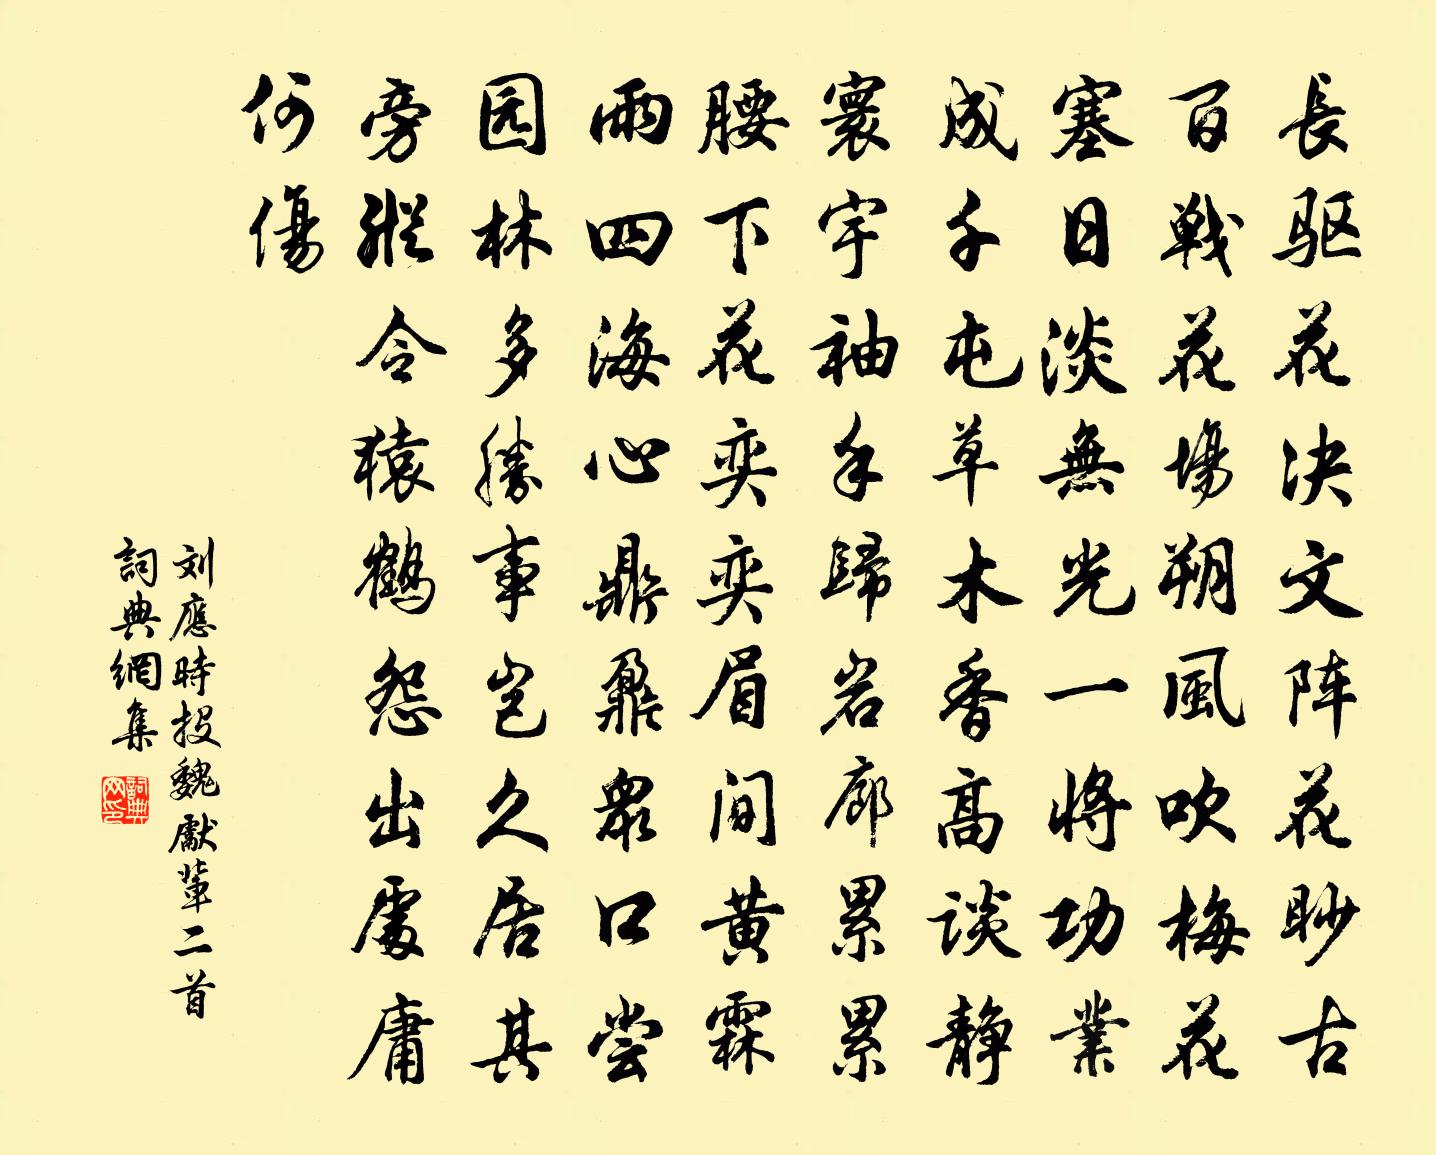 長驱花决文阵花眇古
百戦花場朔風吹梅花
塞日淡無光一將功業
成千屯草木香高談静
寰宇袖手歸岩廊累累
腰下花奕奕眉间黄霖
雨四海心鼎鼐衆口尝
园林多勝事岂久居其
旁縱令猿鶴怨出處庸
何傷
刘應時投魏獻輩二首
詞典網集
詞典
网印